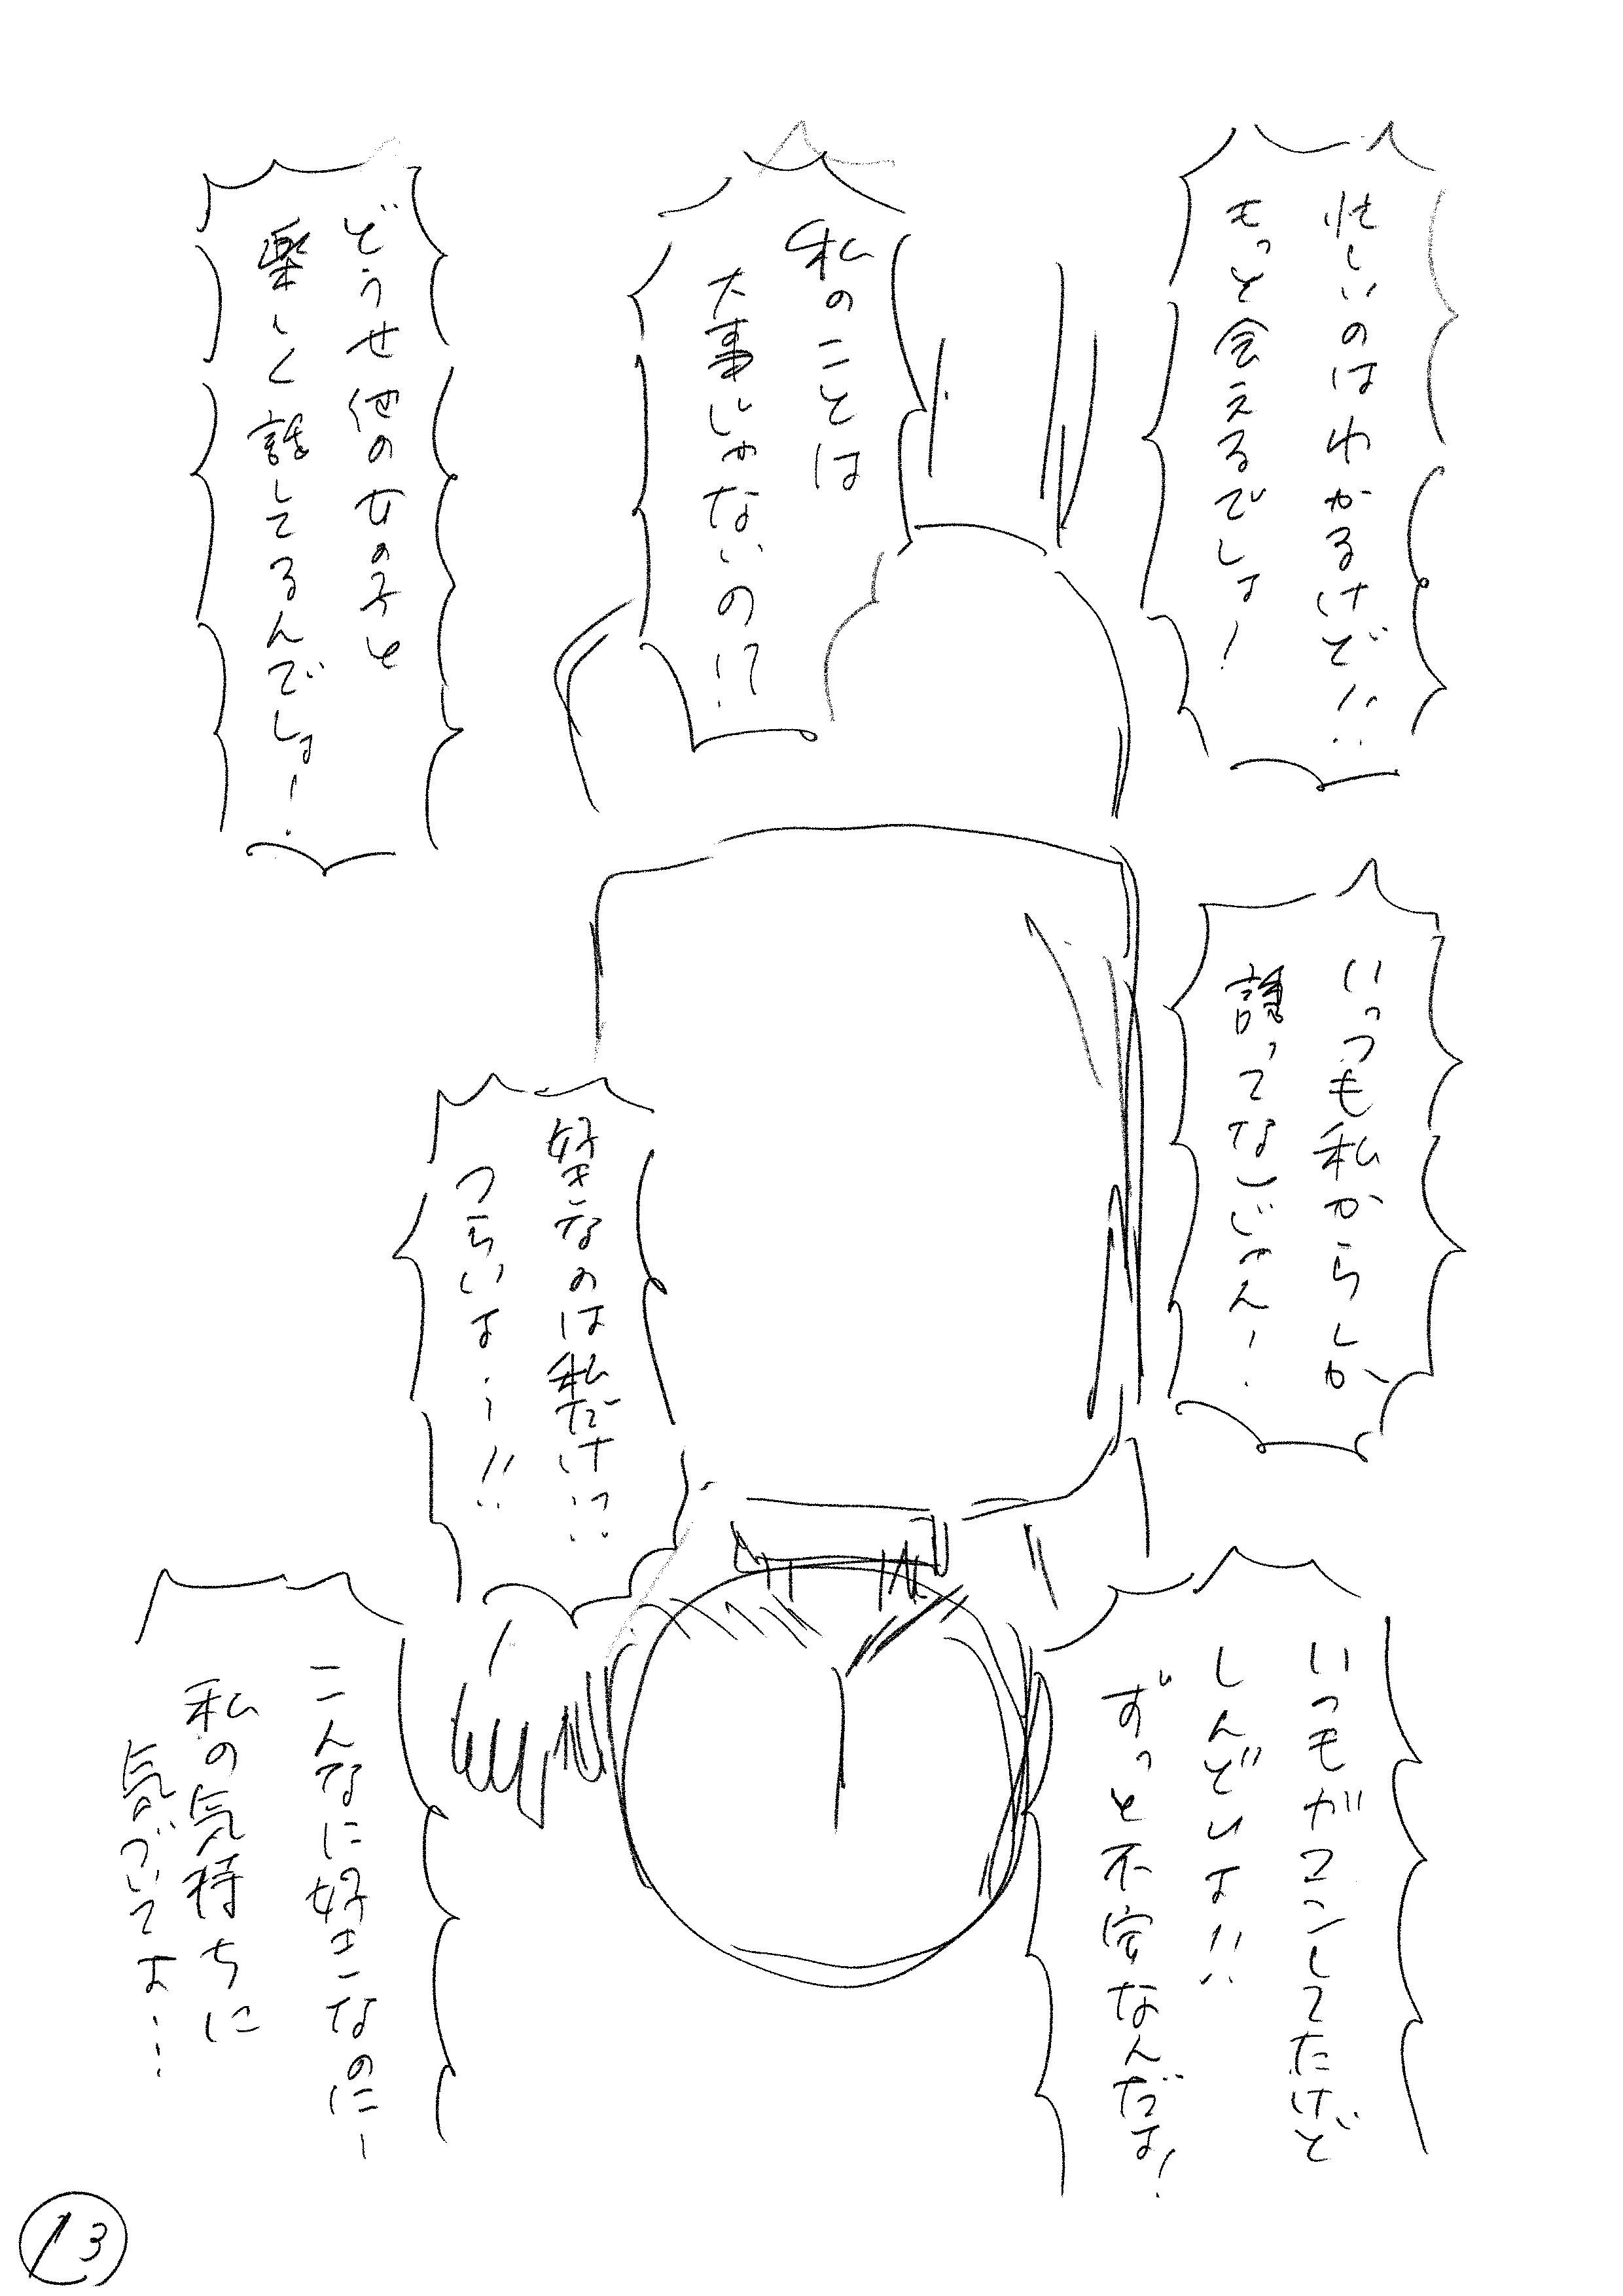 忙しいのはわかるけど!!
もっと会えるでしょ!
私のことは
大事じゃないの!?
どうせ他の女の子と
楽しく話してるんでしょ!
いっつも私からしか
誘ってないじゃん!
好きなのは私だけ!?
つらいよ…!!
いつもガマンしてたけど
しんどいよ!!
ずっと不安なんだよ!
こんなに好きなのに!
私の気持ちに
気づいてよ…
13